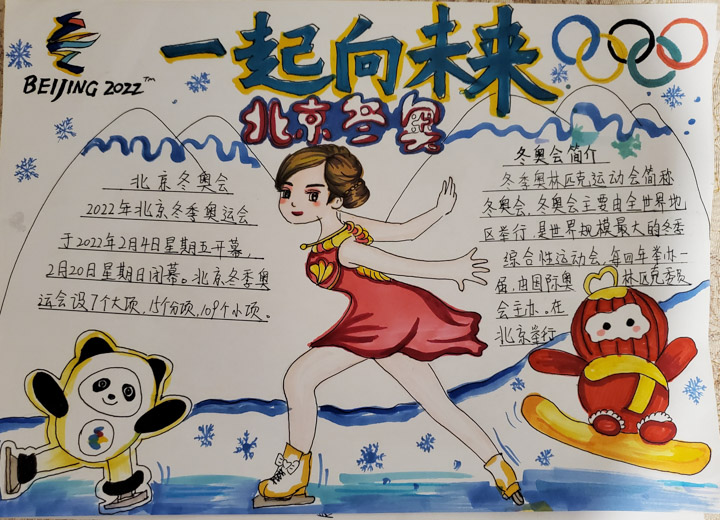 BEIJING 2022™
一起向未来
北京冬奥
北京冬奥会
2022年北京冬季奥运会
于2022年2月4日星期五开幕,
2月20日星期日闭幕。北京冬季奥
运会设7个大项,15个分项,109个小项。
冬奥会简介
冬季奥林匹克运动会简称
冬奥会,冬奥会主要由全世界地
区举行,是世界规模最大的冬季
综合性运动会,每四年举办一
届,由国际奥林匹克委员
会主办。在
北京举行